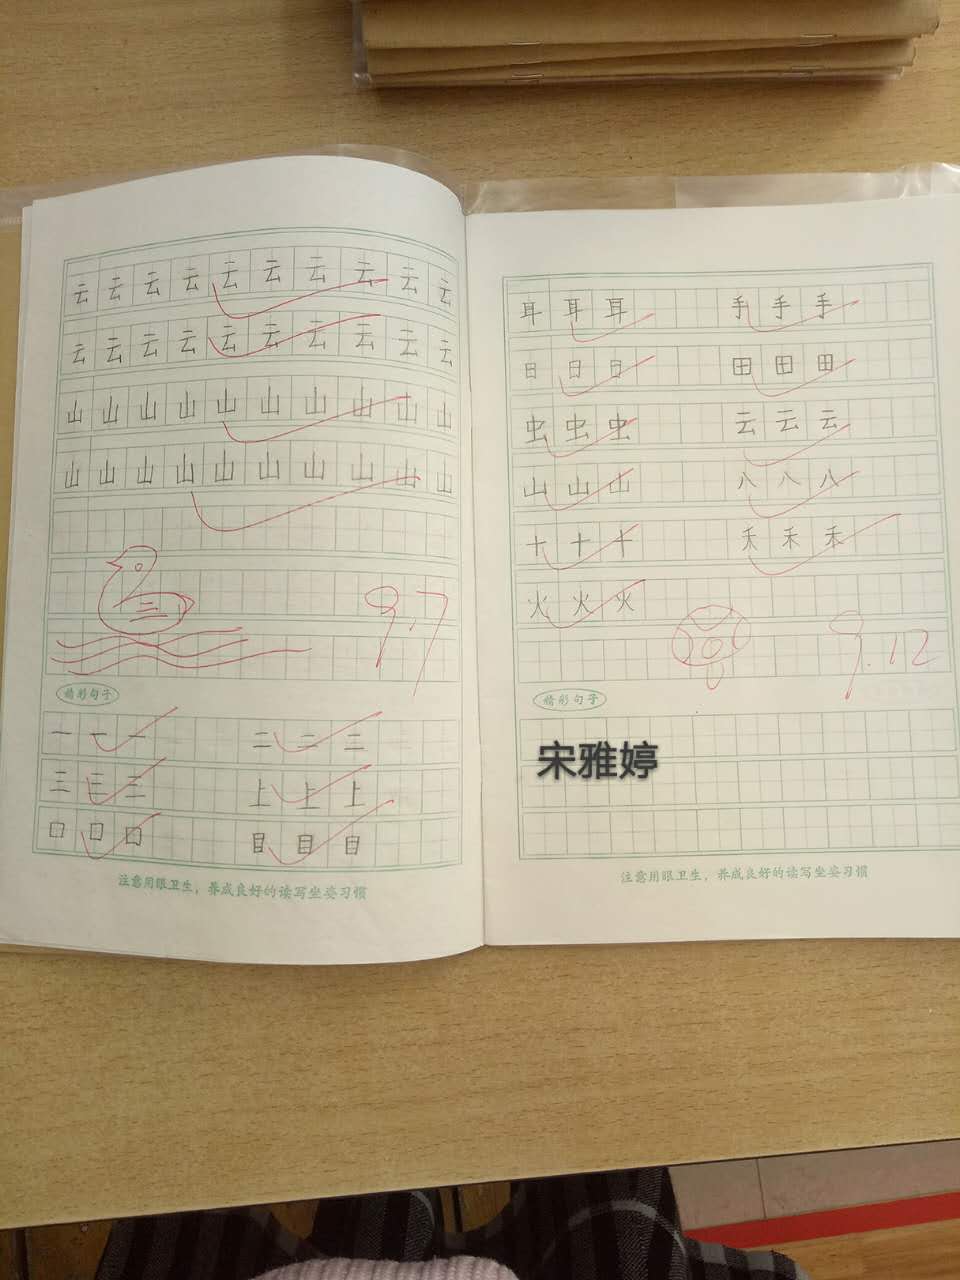 云云云云云云云云云云
云云云云云云云云云云
山山山山山山山山山山
山山山山山山山山山山
9.7
精彩句子
一 一 一 二 二 二
三 三 三 上 上 上
口 口 口 目 目 目
注意用眼卫生，养成良好的读写坐姿习惯
耳 耳 耳 手 手 手
日 日 日 田 田 田
虫 虫 虫 云 云 云
山 山 山 八 八 八
十 十 十 禾 禾 禾
火 火 火
9.12
精彩句子
宋雅婷
注意用眼卫生，养成良好的读写坐姿习惯